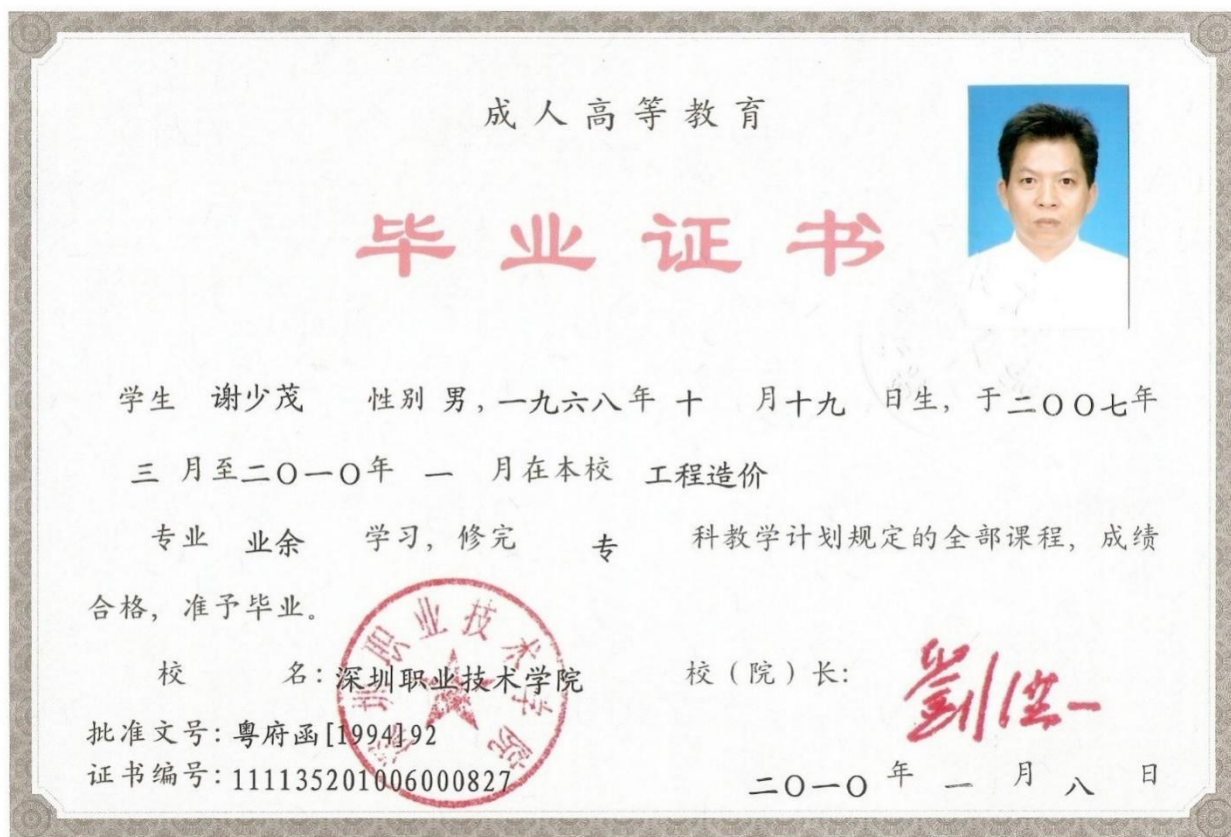 成人高等教育
毕业证书
学生 谢少茂 性别 男，一九六八年 十 月十九 日生，于二〇〇七年
三 月至二〇一〇年 一 月在本校 工程造价
专业 业余 学习，修完 专 科教学计划规定的全部课程，成绩
合格，准予毕业。
校 名：深圳职业技术学院 校（院）长：劉洪一
批准文号：粤府函[1994]92
证书编号：111135201006000827
二〇一〇 年 一 月 八 日
深圳职业技术学院